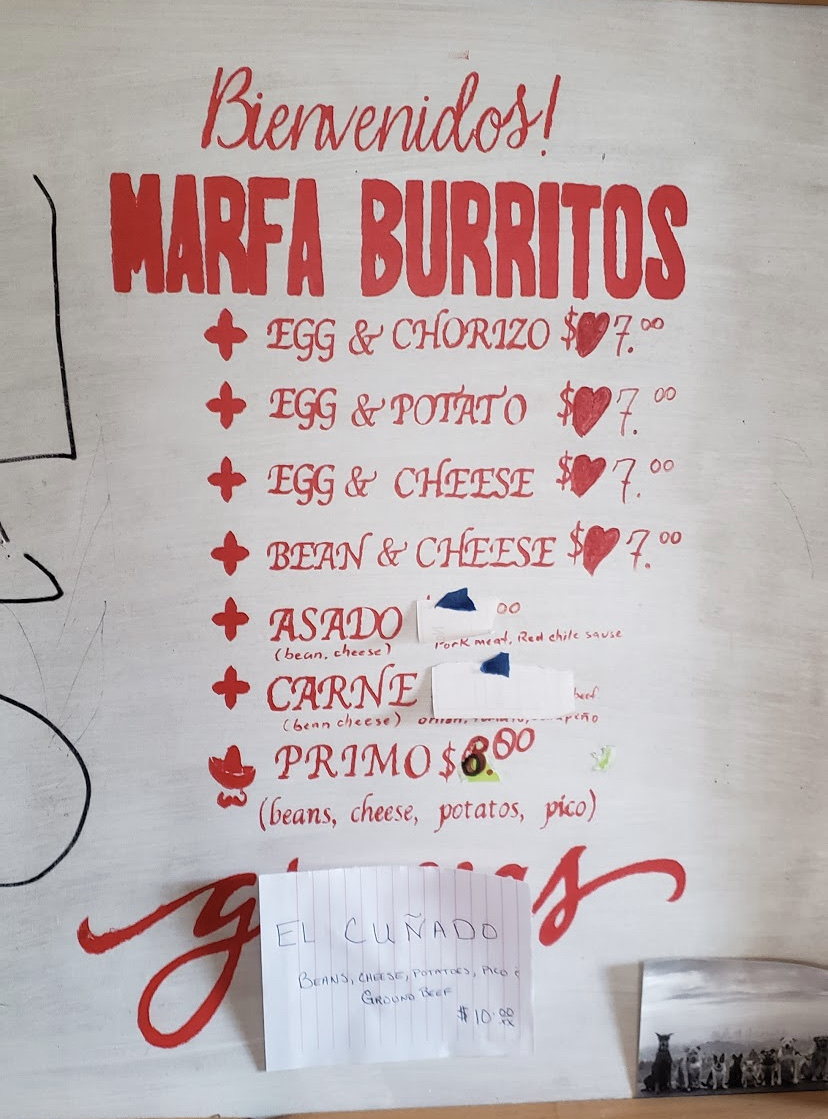 Bienvenidos!
MARFA BURRITOS
EGG & CHORIZO $ 7.00
EGG & POTATO $ 7.00
EGG & CHEESE $ 7.00
BEAN & CHEESE $ 7.00
ASADO 00
(bean, cheese) Pork meat, Red chile sause
CARNE beef
(bean cheese)
PRIMO $8.00
(beans, cheese, potatos, pico)
EL CUÑADO
BEANS, CHEESE, POTATOES, PICO &
GROUND BEEF
$10.00